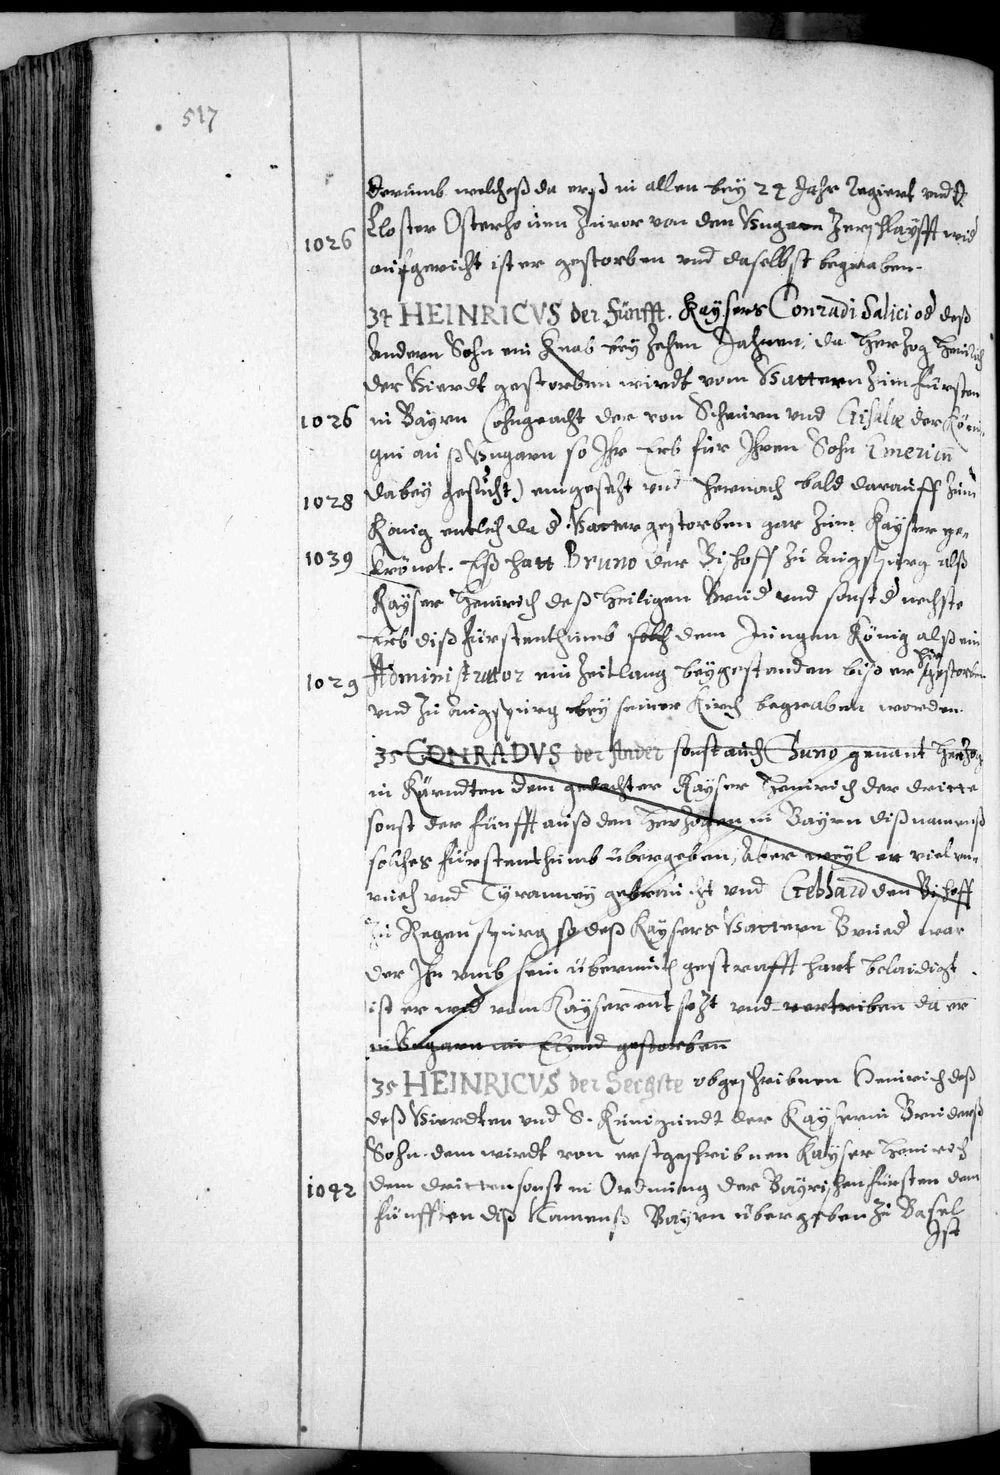 517
derumb welcheß da erß in allen bey 24 Jahr Regiert und d
Closter Osterhouen zuvor von den Vngern zerschlayfft wid
1026
aufgericht ist er gestorben vnd daselbst begraben.
34 HEINRICVS der Fünfft. Kaysers Conradi Salici od deß
Andern Sohn ein Knab bey zehen Jahren, da Herzog Heinrich
der Vierdt gestorben wirdt vom Vattern zum Fürsten
1026 in Bayrn (ohngeacht der von Scheirn vnd Gisalæ der Köni-
gin auß Vngarn so Ihr Erb für Ihren Sohn Emericu
1028 dabey gesucht) eingesezt vnd hernach bald darauff zum
König entlich da d Vatter gestorben gar zum Kayser ge-
1039 krönet. Eß hatt Bruno der Bischoff zu Augspurg alß
Kayser Heinrich deß Heiligen Brud vnd sonst d nechste
Erb diß Fürstenthumb solch dem Jungen König alß ein
1029 Administrator ein Zeitlang beygestanden biß er gestorben
vnd zu Augspurg bey seiner Kirch begraben worden.
35 CONRADVS der Ander sonst auch Cuno genant Herzog
in Kärndten dem gedachter Kayser Heinrich der dritte
sonst der fünfft auß den Herzogen in Bayrn diß namenß
solches Fürstenthumb übergeben, Aber weyl er viel vn-
rueh vnd Tyranney gebraucht vnd Gebhard den Bischoff
zu Regenspurg so deß Kaysers Vattern Brued war
der Ihn vmb sein übermuth gestrafft hart belaidigt
ist er wid vom Kayser entsezt vnd vertriben da er
in Vngarn im Elend gestorben
35 HEINRICVS der Sechste obgeschribnen Heinrich deß
deß Vierdten vnd S. Kunigundt der Kayserin Bruderß
Sohn dem wirdt von erstgeschribnen Kayser Heinrich
1042 dem dritten sonst in Ordnung der Bayrischen Fürsten dem
fünfften diß Namenß Bayrn übergeben zu Basel
Ist